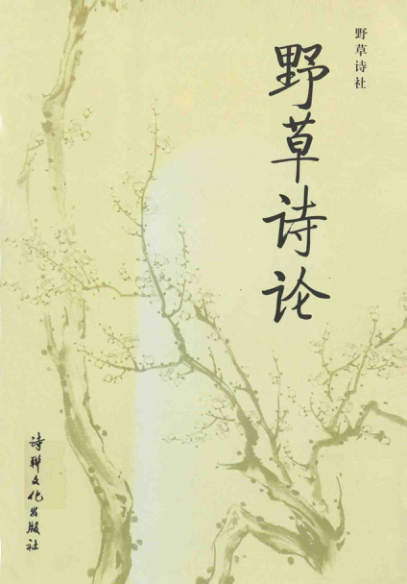 野草诗社
野草诗论
诗联文化出版社